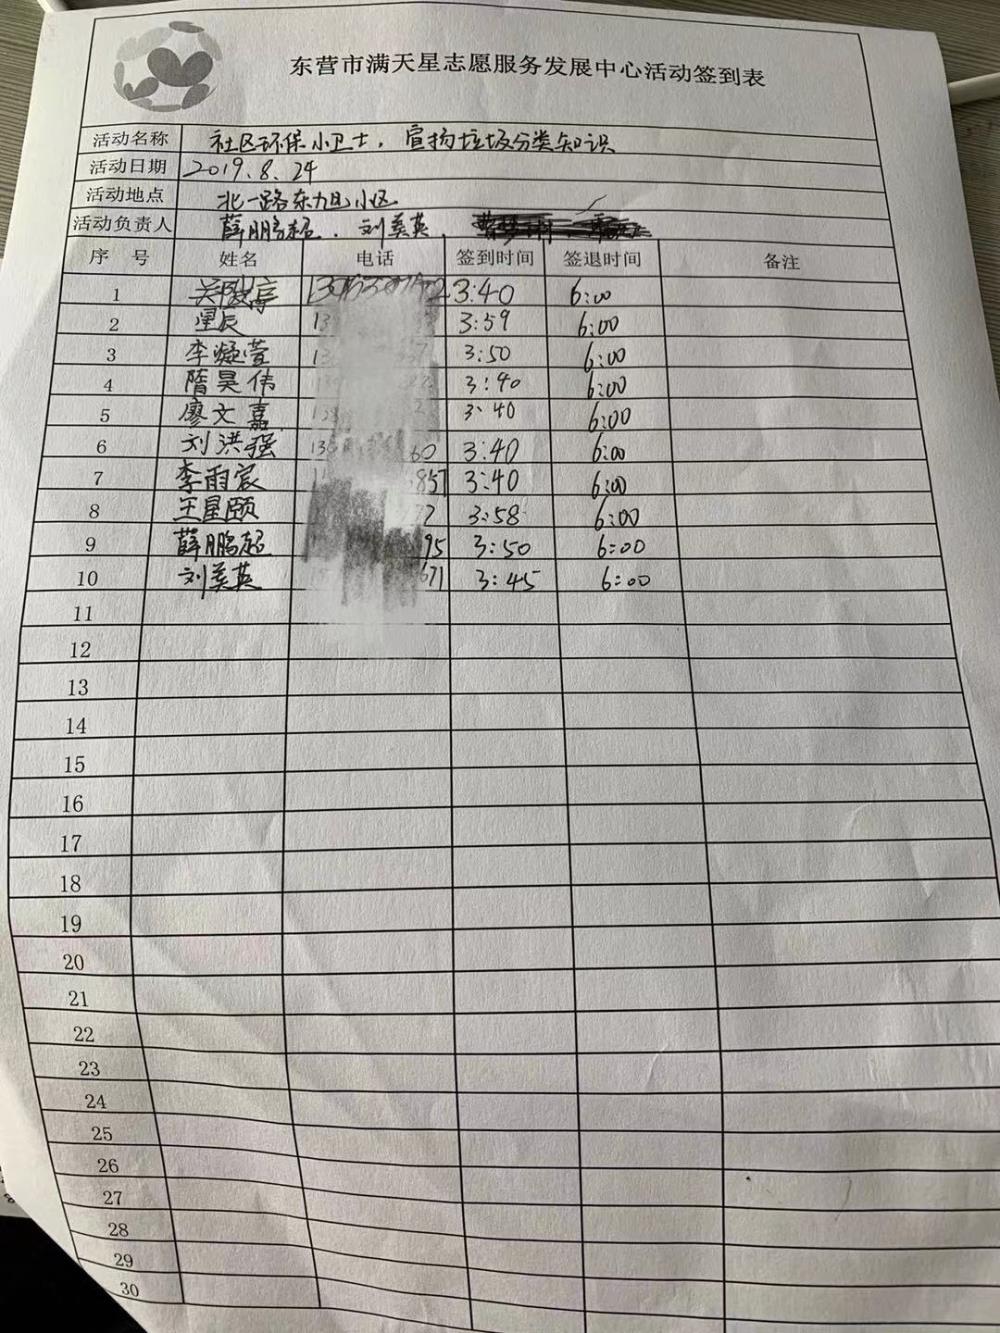 东营市满天星志愿服务发展中心活动签到表
活动名称 社区环保小卫士，宣扬垃圾分类知识
活动日期 2019.8.24
活动地点 北一路东九旭小区
活动负责人 薛鹏超、刘美英、
序 号 姓名 电话 签到时间 签退时间 备注
1 3:40 6:00
2 星辰 13 3:59 6:00
3 李凝萱 13 3:50 6:00
4 隋昊伟 139 3:40 6:00
5 廖文嘉 3:40 6:00
6 刘洪强 13 60 3:40 6:00
7 李雨宸 857 3:40 6:00
8 王星颐 72 3:58 6:00
9 薛鹏超 95 3:50 6:00
10 刘美英 671 3:45 6:00
11
12
13
14
15
16
17
18
19
20
21
22
23
24
25
26
27
28
29
30